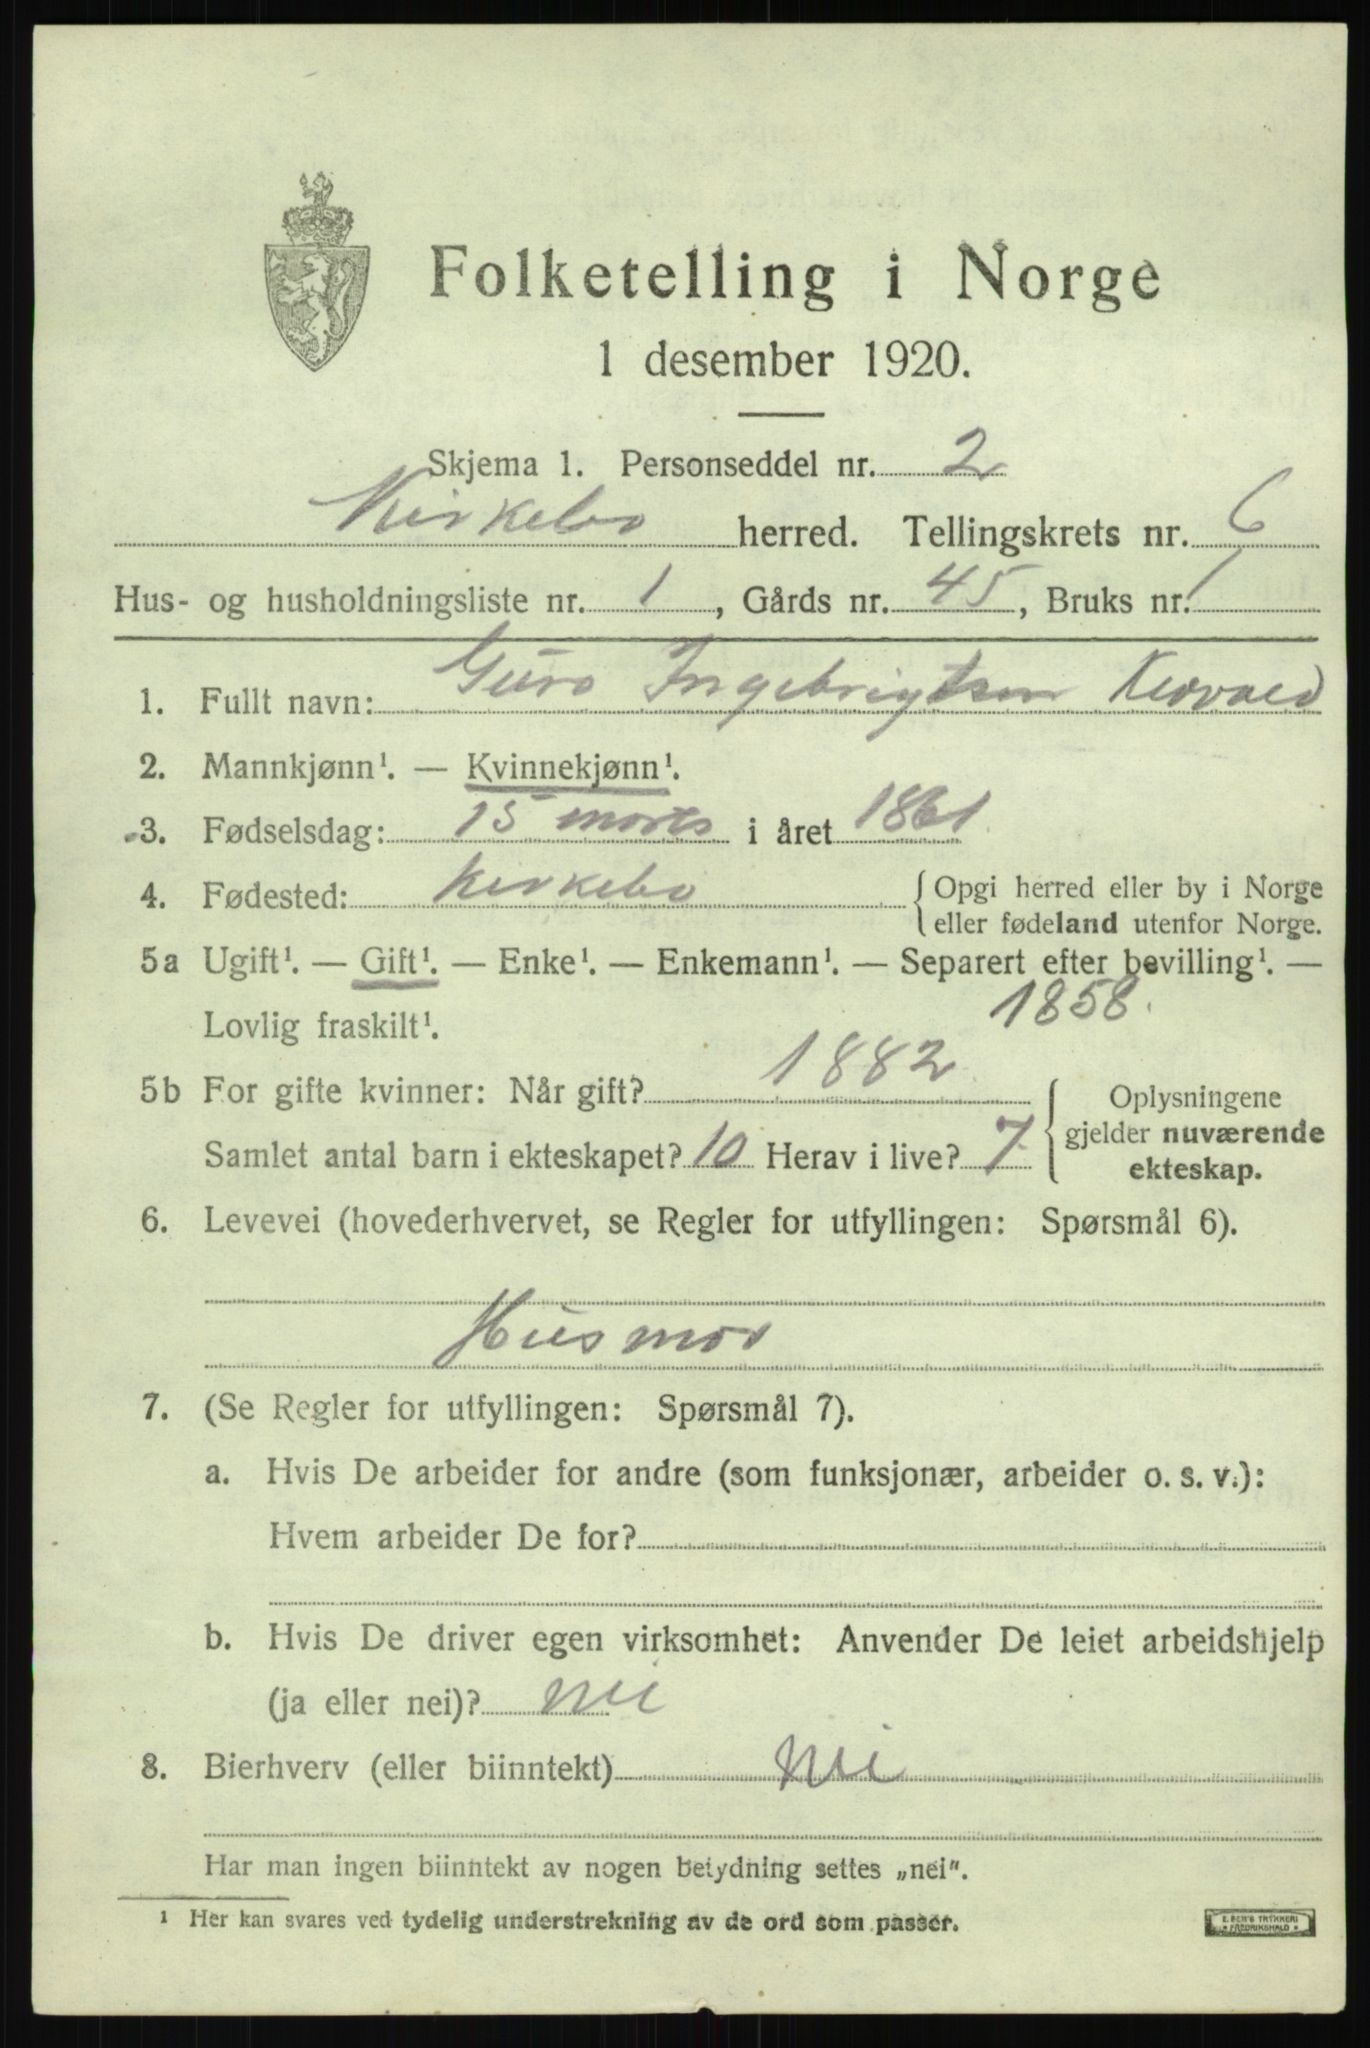 Folketelling i Norge
1 desember 1920.
Skjema 1. Personseddel nr. 2
Kirkebø herred. Tellingskrets nr. 6
Hus- og husholdningsliste nr. 1, Gårds nr. 45, Bruks nr. 1
1. Fullt navn: Guro Ingebrigtsen
2. Mannkjønn¹. — Kvinnekjønn¹.
3. Fødselsdag: 15 marts i året 1861
4. Fødested: Kirkebø {Opgi herred eller by i Norge
eller fødeland utenfor Norge.
5a Ugift¹. — Gift¹. — Enke¹. — Enkemann¹. — Separert efter bevilling¹. —
Lovlig fraskilt¹. 1858.
5b For gifte kvinner: Når gift? 1882 { Oplysningene
gjelder nuværende
Samlet antal barn i ekteskapet? 10 Herav i live? 7 ekteskap.
6. Levevei (hovederhvervet, se Regler for utfyllingen: Spørsmål 6).
Husmor
7. (Se Regler for utfyllingen: Spørsmål 7).
a. Hvis De arbeider for andre (som funksjonær, arbeider o. s. v.):
Hvem arbeider De for?
b. Hvis De driver egen virksomhet: Anvender De leiet arbeidshjelp
(ja eller nei)? nei
8. Bierhverv (eller biinntekt) nei
Har man ingen biinntekt av nogen betydning settes „nei".
¹ Her kan svares ved tydelig understrekning av de ord som passer.